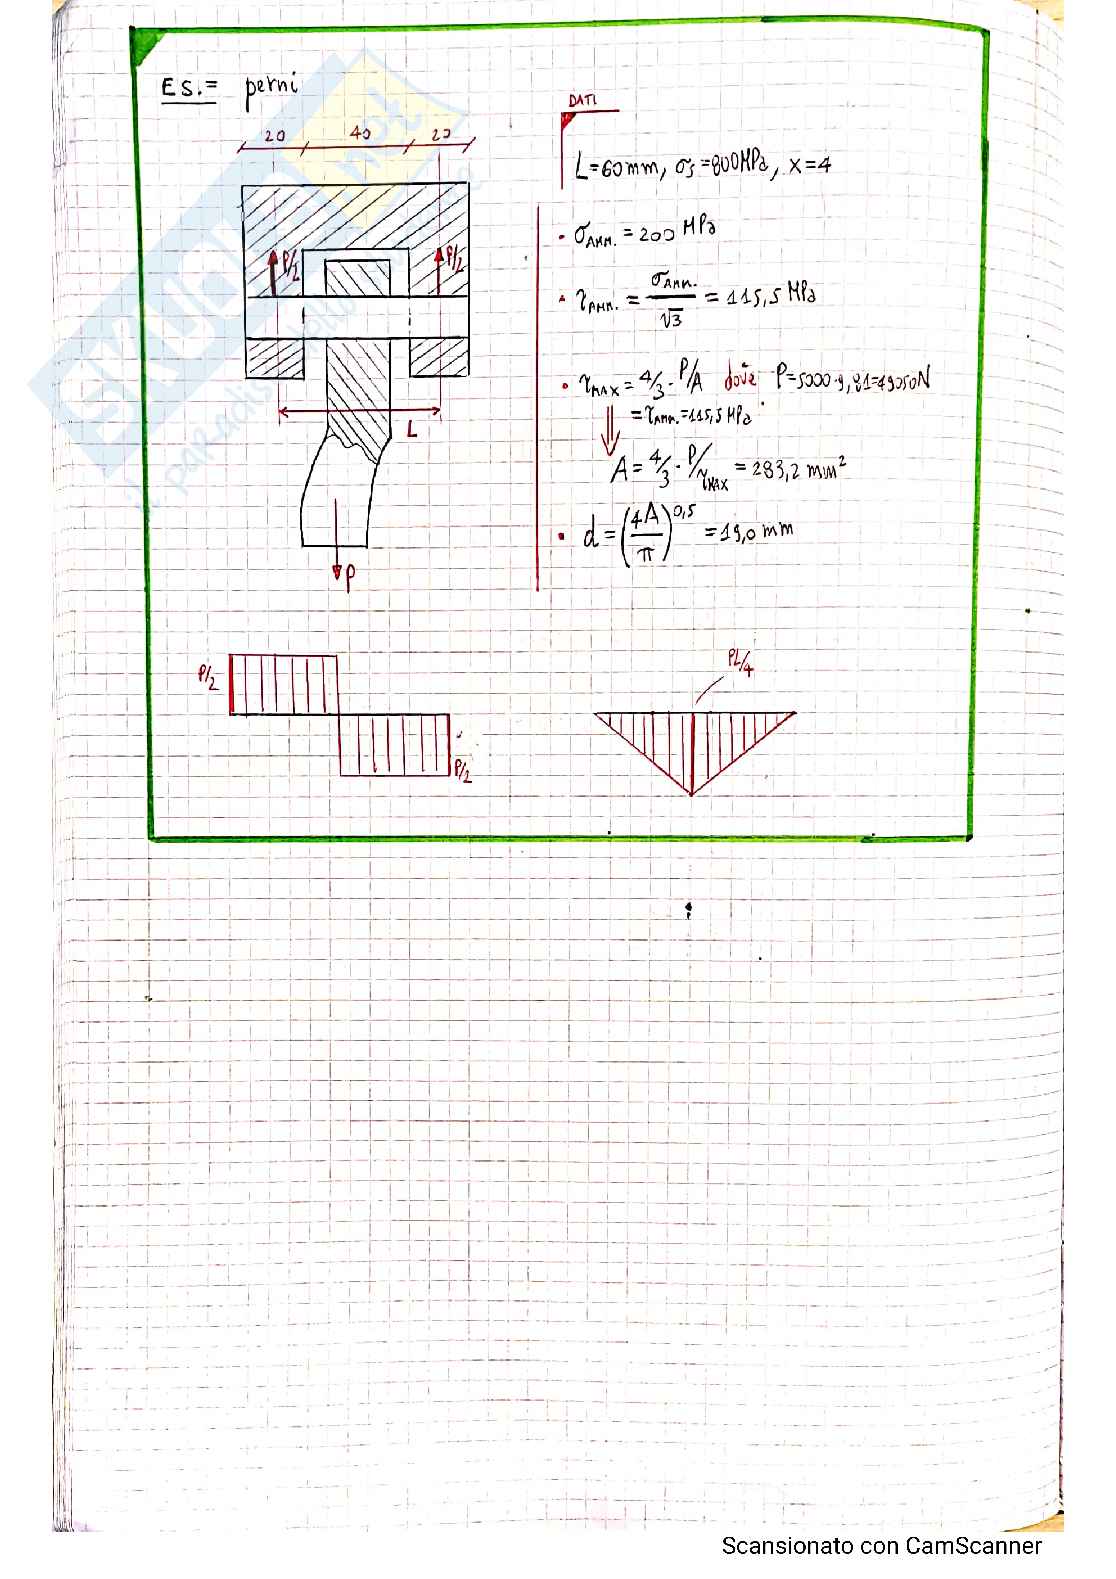 Es.= perni
20 40 20
P/2 P/2
L
P
DATI
L=60mm, σs=800MPa, X=4
• σAMM. = 200 MPa
• τAMM. = σAMM./√3 = 115,5 MPa
• τMAX = 4/3 · P/A dove: P=5000·9,81=49050N
= τAMM. = 115,5 MPa
A = 4/3 · P/τMAX = 283,2 mm²
• d = (4A/π)^0,5 = 19,0 mm
P/2
P/2
PL/4
SKUOLA.net
il paradiso dello
Scansionato con CamScanner